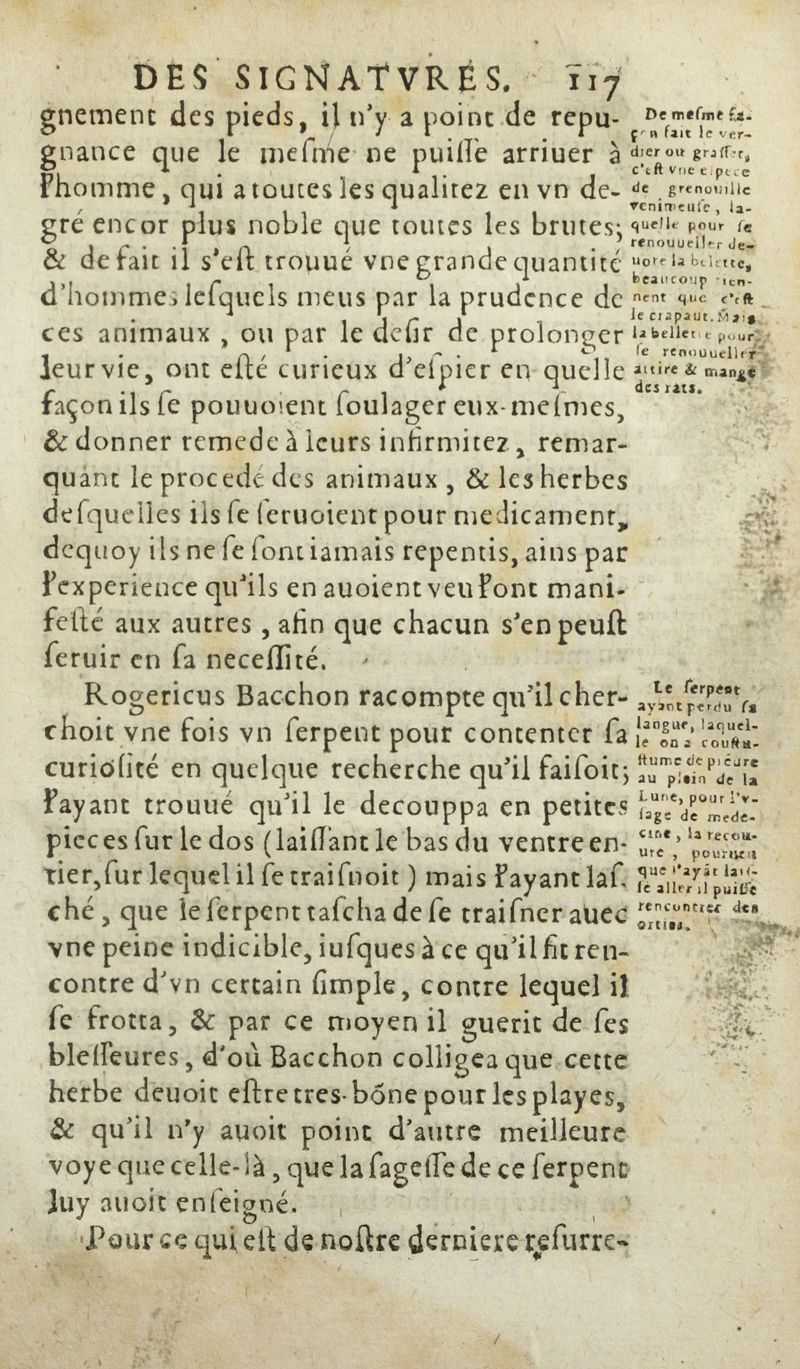 DES SIGNATVRES. 117
gnement des pieds, il n'y a point de repu-
gnance que le mesme ne puisse arriuer à
l'homme, qui a toutes les qualitez en vn de-
gré encor plus noble que toutes les brutes;
& de fait il s'est trouué vne grande quantité
d'hommes lesquels meus par la prudence de
ces animaux, ou par le desir de prolonger
leur vie, ont esté curieux d'espier en quelle
façon ils se pouuoient soulager eux-mesmes,
& donner remede à leurs infirmitez, remar-
quant le procedé des animaux, & les herbes
desquelles ils se seruoient pour medicament,
dequoy ils ne se sont iamais repentis, ains par
l'experience qu'ils en auoient veu l'ont mani-
festé aux autres, afin que chacun s'en peust
seruir en sa necessité.
Rogericus Bacchon racompte qu'il cher-
choit vne fois vn serpent pour contenter sa
curiosité en quelque recherche qu'il faisoit;
l'ayant trouué qu'il le decouppa en petites
pieces sur le dos (laissant le bas du ventre en-
tier, sur lequel il se traisnoit) mais l'ayant las-
ché, que le serpent tascha de se traisner auec
vne peine indicible, iusques à ce qu'il fit ren-
contre d'vn certain simple, contre lequel il
se frotta, & par ce moyen il guerit de ses
blesseures, d'où Bacchon colligea que cette
herbe deuoit estre tres-bóne pour les playes,
& qu'il n'y auoit point d'autre meilleure
voye que celle-là, que la sagesse de ce serpent
luy auoit enseigné.
Pour ce qui est de nostre derniere resurre-
De mesme fa-
çon fait le ver-
dier ou grasset,
c'est vne espece
de grenouille
venimeuse, la-
quelle pour se
renouueller de-
uore la belette,
beaucoup tien-
nent que c'est
le crapaut. Mais
la bellette pour
se renouueller
attire & mange
des rats.
Le serpent
ayant perdu sa
langue, laquel-
le on a coustu-
stume de picure
au plein de la
Lune, pour l'v-
sage de mede-
cine, la recou-
ure, pourueu
que l'ayāt lais-
se aller il puisse
rencontrer des
orties.